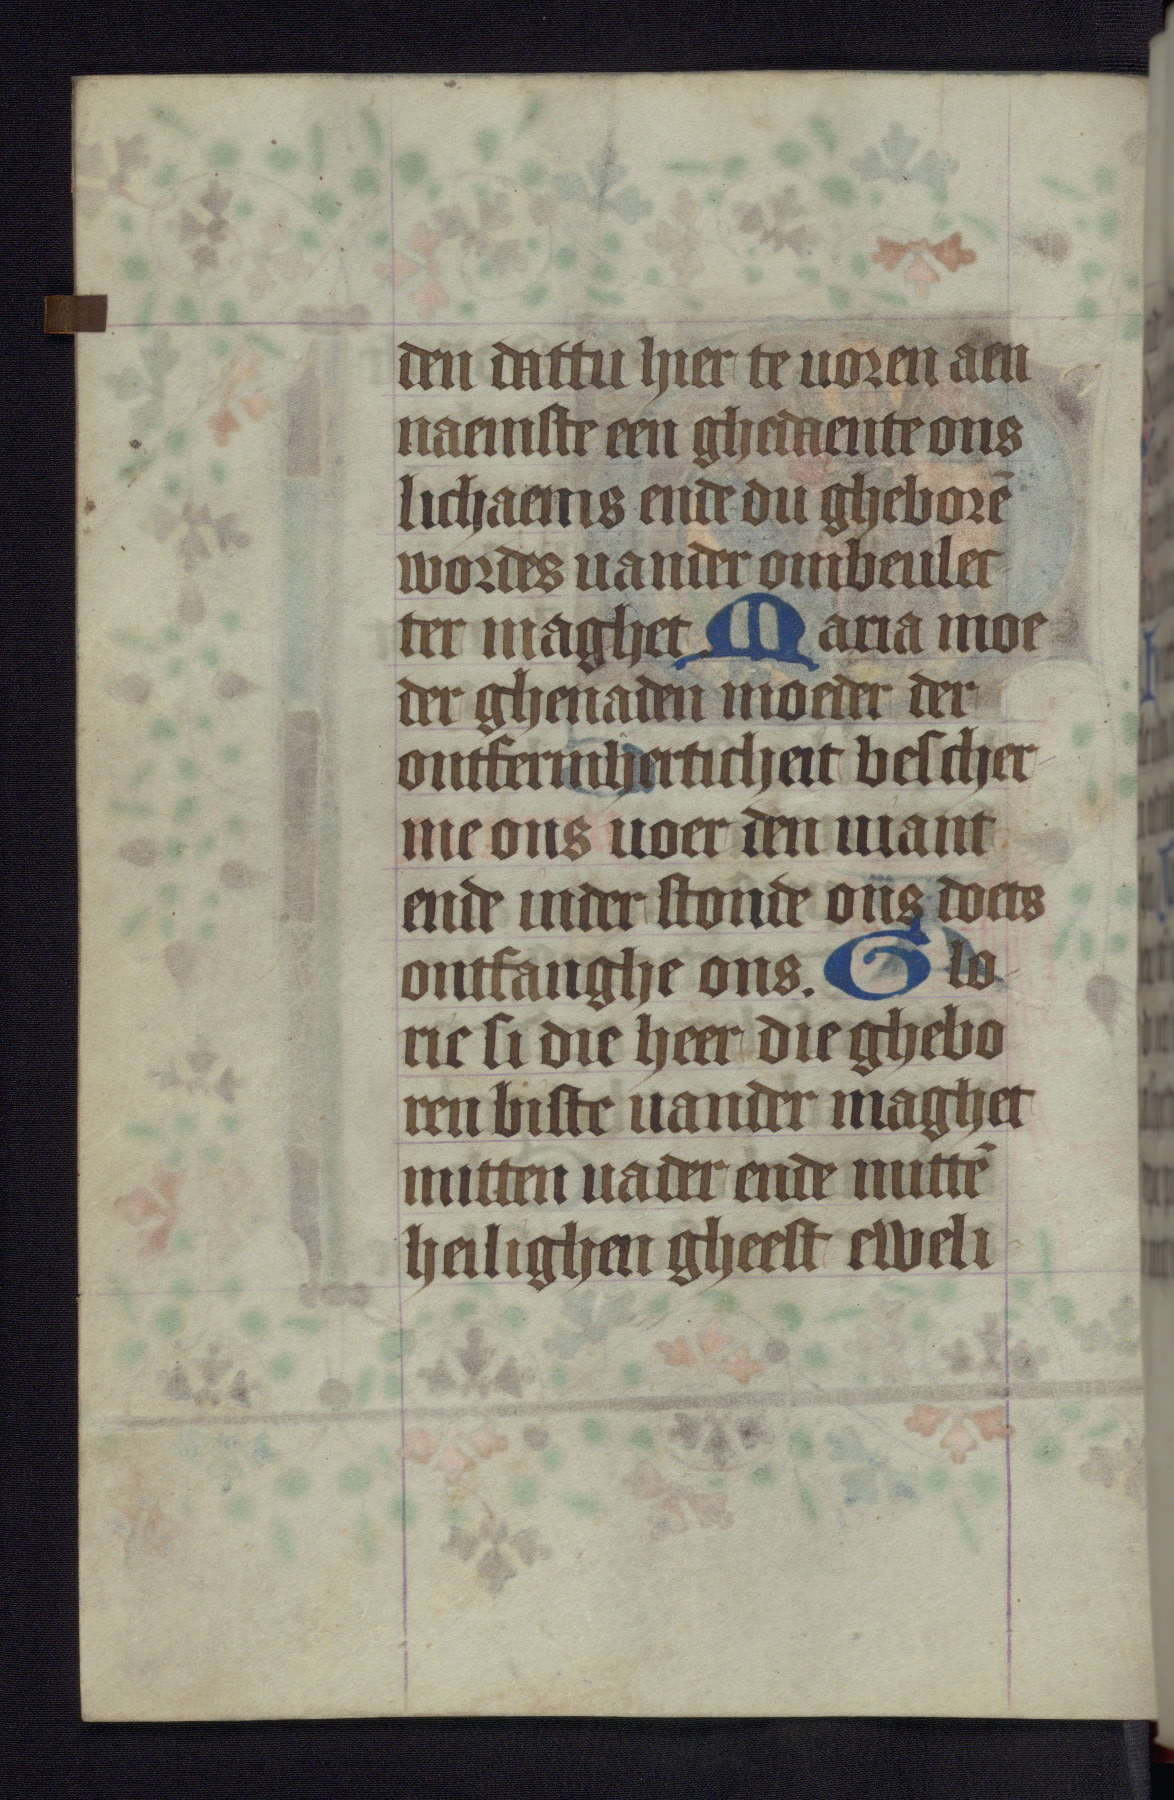 den dattu hier te uoren aen
naemste een ghedaente ons
lichaems ende du gheborē
wordes uander ombeulec
ter maghet Maria moe
der ghenaden moeder der
ontfermherticheit bescher-
me ons uoer den uiant
ende inder stonde ons doets
ontfanghe ons. Glo-
rie si die heer die ghebo
ren biste uander maghet
mitten uader ende mittē
heilighen gheest eweli